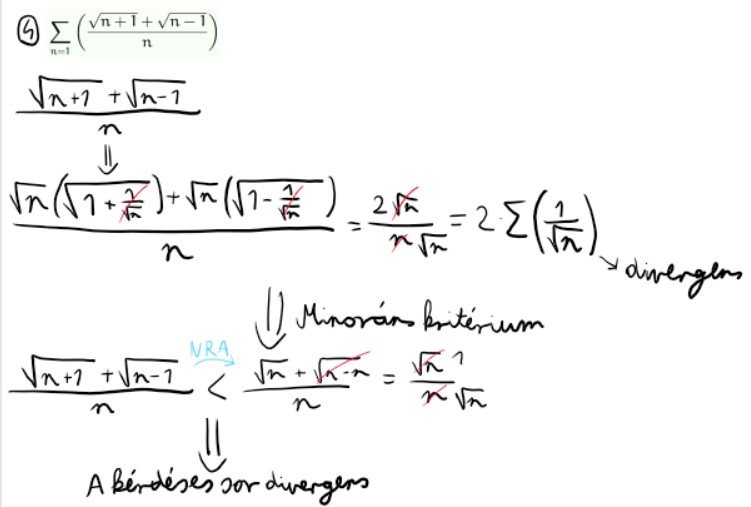 ④ ∑_{n=1} ( (√(n+1) + √(n−1)) / n )
(√(n+1) + √(n−1)) / n
⇓
(√n (√(1 + 1/√n)) + √n (√(1 − 1/√n))) / n = 2√n / (n √n) = 2·∑(1/√n) ↘ divergens
⇓ Minoráns kritérium
(√(n+1) + √(n−1)) / n < NRA (√n + √(n−n)) / n = √n 1 / (n √n)
⇓
A kérdéses sor divergens